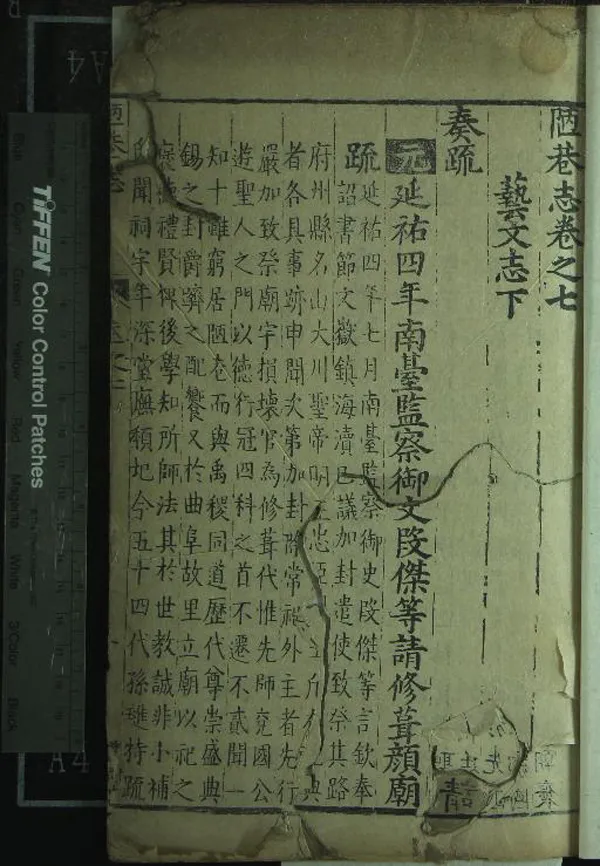 陋巷志卷之七
藝文志下
奏疏
元延祐四年南臺監察御文段傑等請修葺顏廟
疏延祐四年七月南臺監察御史段傑等言欽奉
詔書節文嶽鎮海瀆已議加封遣使致祭其路
府州縣名山大川聖帝明王忠典
者各具事跡申聞次第加封除常祀外主者先行
嚴加致祭廟宇損壞官為修葺代惟先師兗國公
遊聖人之門以德行冠四科之首不遷不貳聞一
知十雖窮居陋巷而與禹稷同道歷代尊崇盛典
錫之封爵躋之配饗又於曲阜故里立廟以祀之
禮賢俾後學知所師法其於世教誠非小補
聞祠宇年深堂廡頹圮今五十四代孫持疏
TIFFEN Color Control Patches
Blue Cyan Green Yellow Red Magenta White 3/Color Black
A4
A4